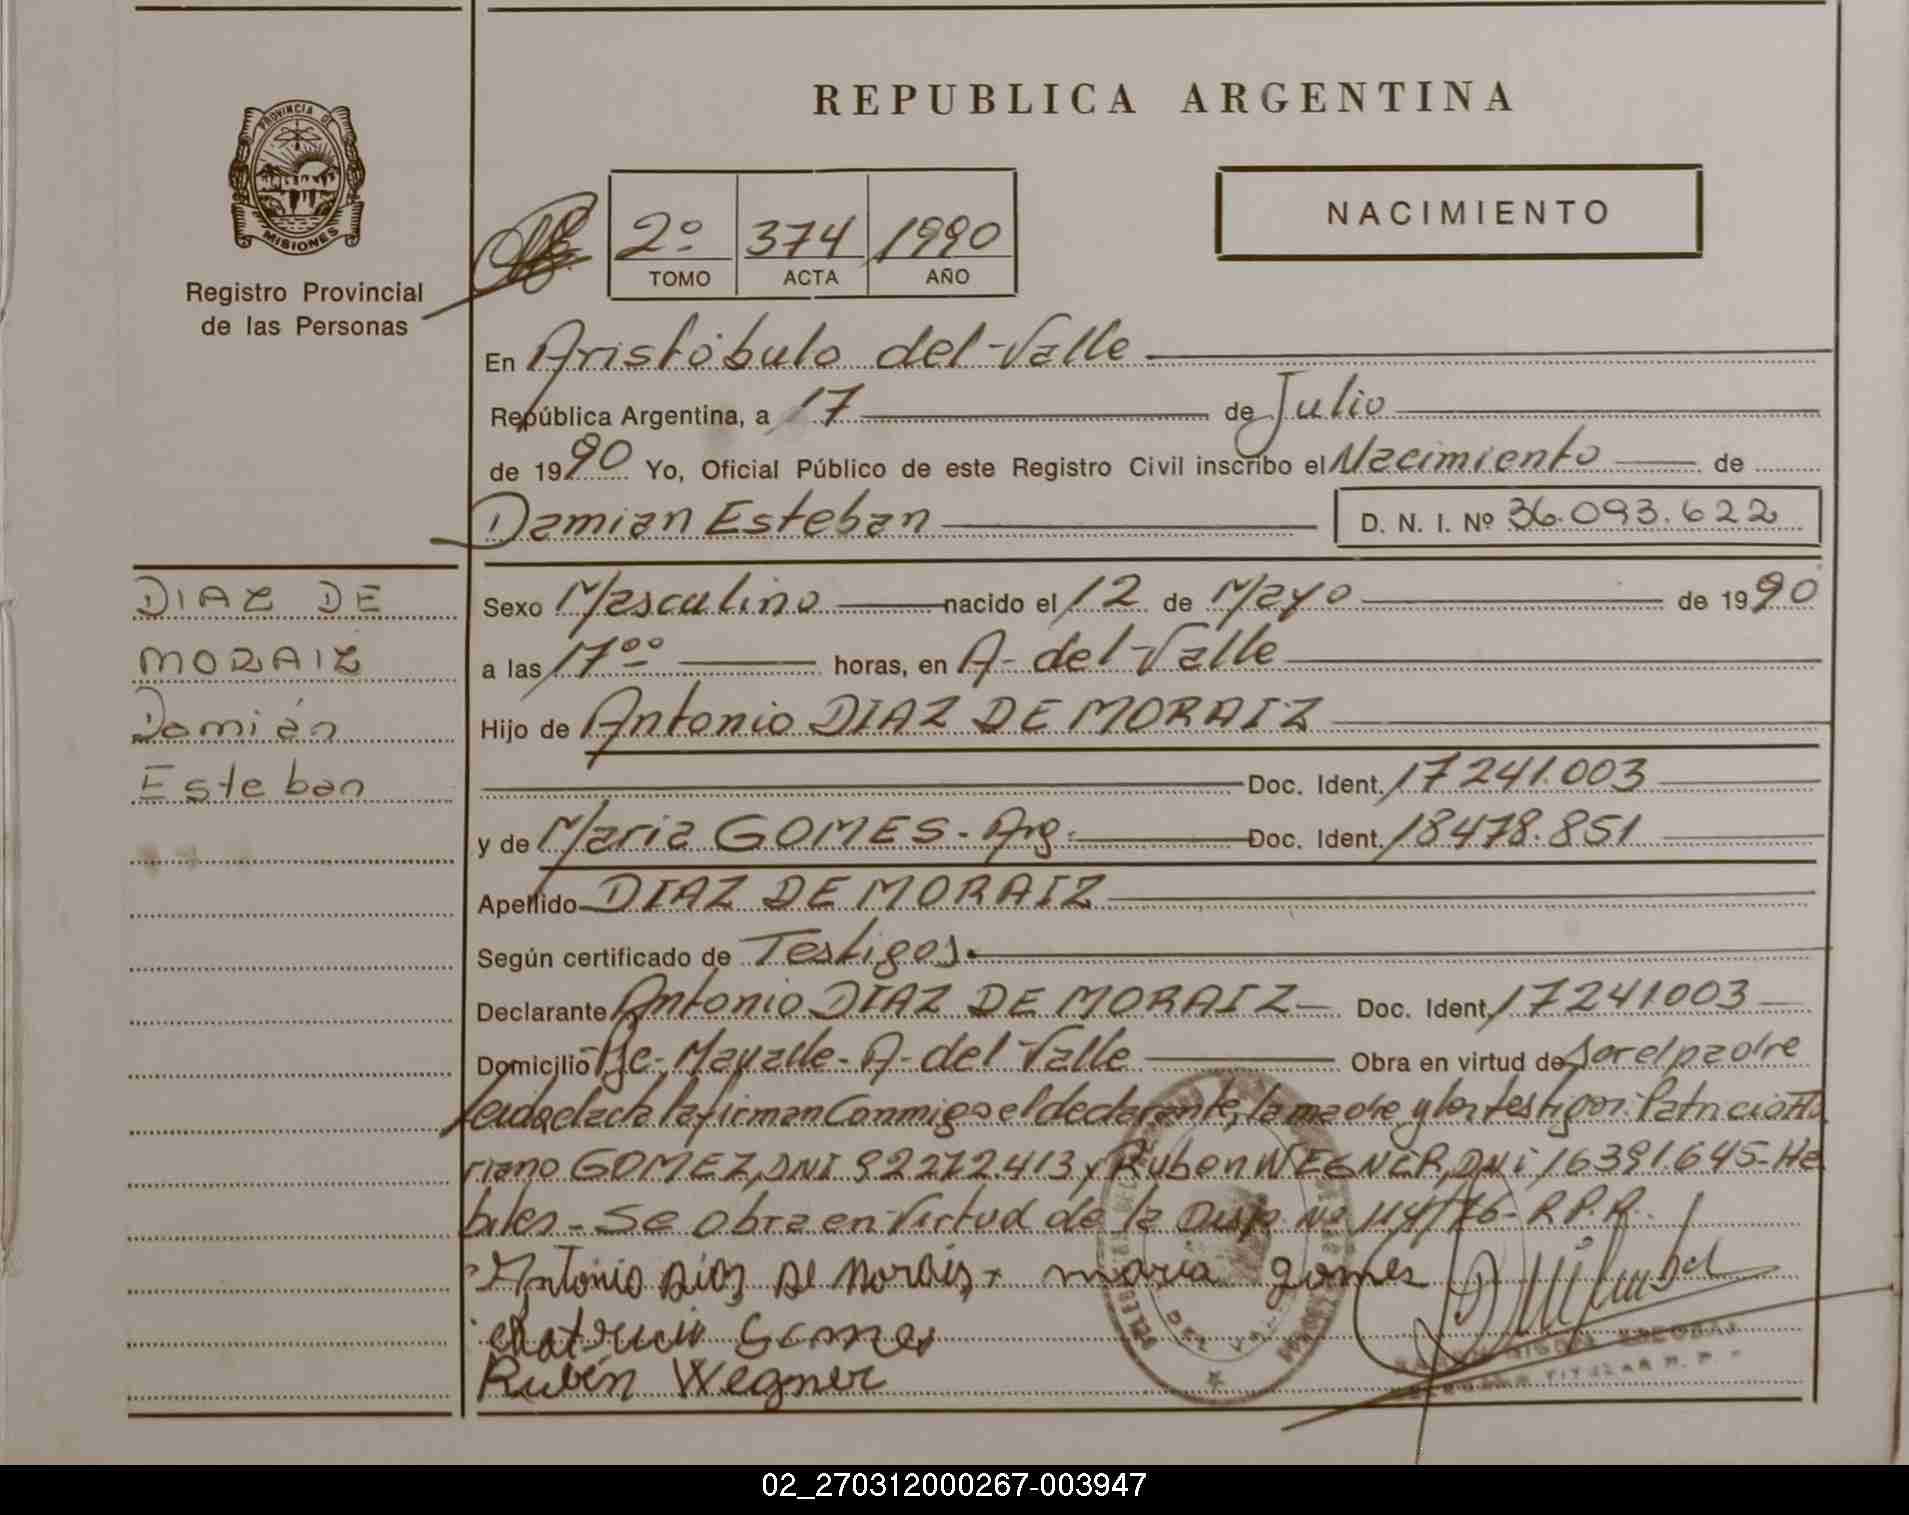 REPUBLICA ARGENTINA
PROVINCIA DE
MISIONES
Registro Provincial
de las Personas
2º 374 1990
TOMO ACTA AÑO
NACIMIENTO
En Aristóbulo del Valle
República Argentina, a 17 de Julio
de 1990 Yo, Oficial Público de este Registro Civil inscribo el Nacimiento de
Damian Esteban D. N. I. Nº 36.093.622
DIAZ DE
MORAIZ
Damián
Esteban
Sexo Masculino nacido el 12 de Mayo de 1990
a las 17ºº horas, en A- del Valle
Hijo de Antonio DIAZ DE MORAIZ
Doc. Ident. 17241.003
y de Maria GOMES - Arg. Doc. Ident. 18478.851
Apellido DIAZ DE MORAIZ
Según certificado de Testigos.
Declarante Antonio DIAZ DE MORAIZ Doc. Ident. 17241003
Domicilio A- del Valle Obra en virtud de ser el padre
Leida el acta la firman Conmigo el declarante, la madre y los testigos: Patricio
riano GOMEZ, DNI 92272.413 y Ruben WEGNER, DNI 16391.645- Ha
biles - Se obra en Virtud de la Disp. Nº 114/76- R.P.R.
Antonio Dias De Morais maria gomes
Gomes
Rubén Wegner
DEL VALLE
02_270312000267-003947